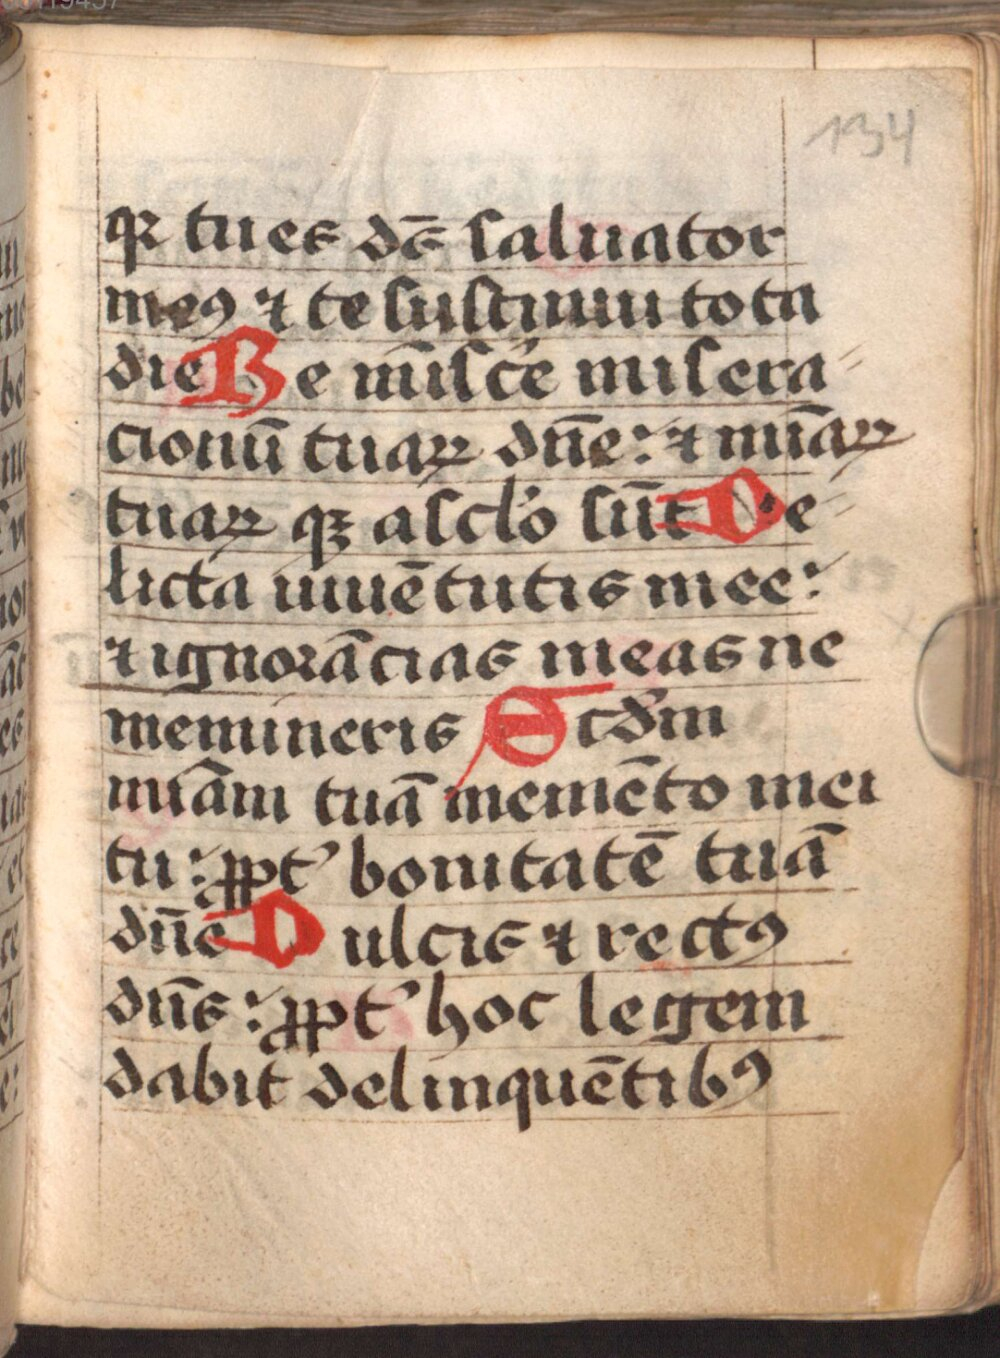 134
qꝛ tu es dē̄s saluator
meꝯ ⁊ te sustinui tota
die Re mīscē misera⸗
cionū tuaꝝ dn̄e: ⁊ mīaꝝ
tuaꝝ qꝫ a sclo sūt De⸗
licta iuuētutis mee:
⁊ ignorācias meas ne
memineris Scdm
miām tuā memēto mei
tu: ꝓpt' bonitatē tuā
dn̄e Dulcis ⁊ rectꝯ
dn̄s: ꝓpt' hoc legem
dabit delinquētibꝯ